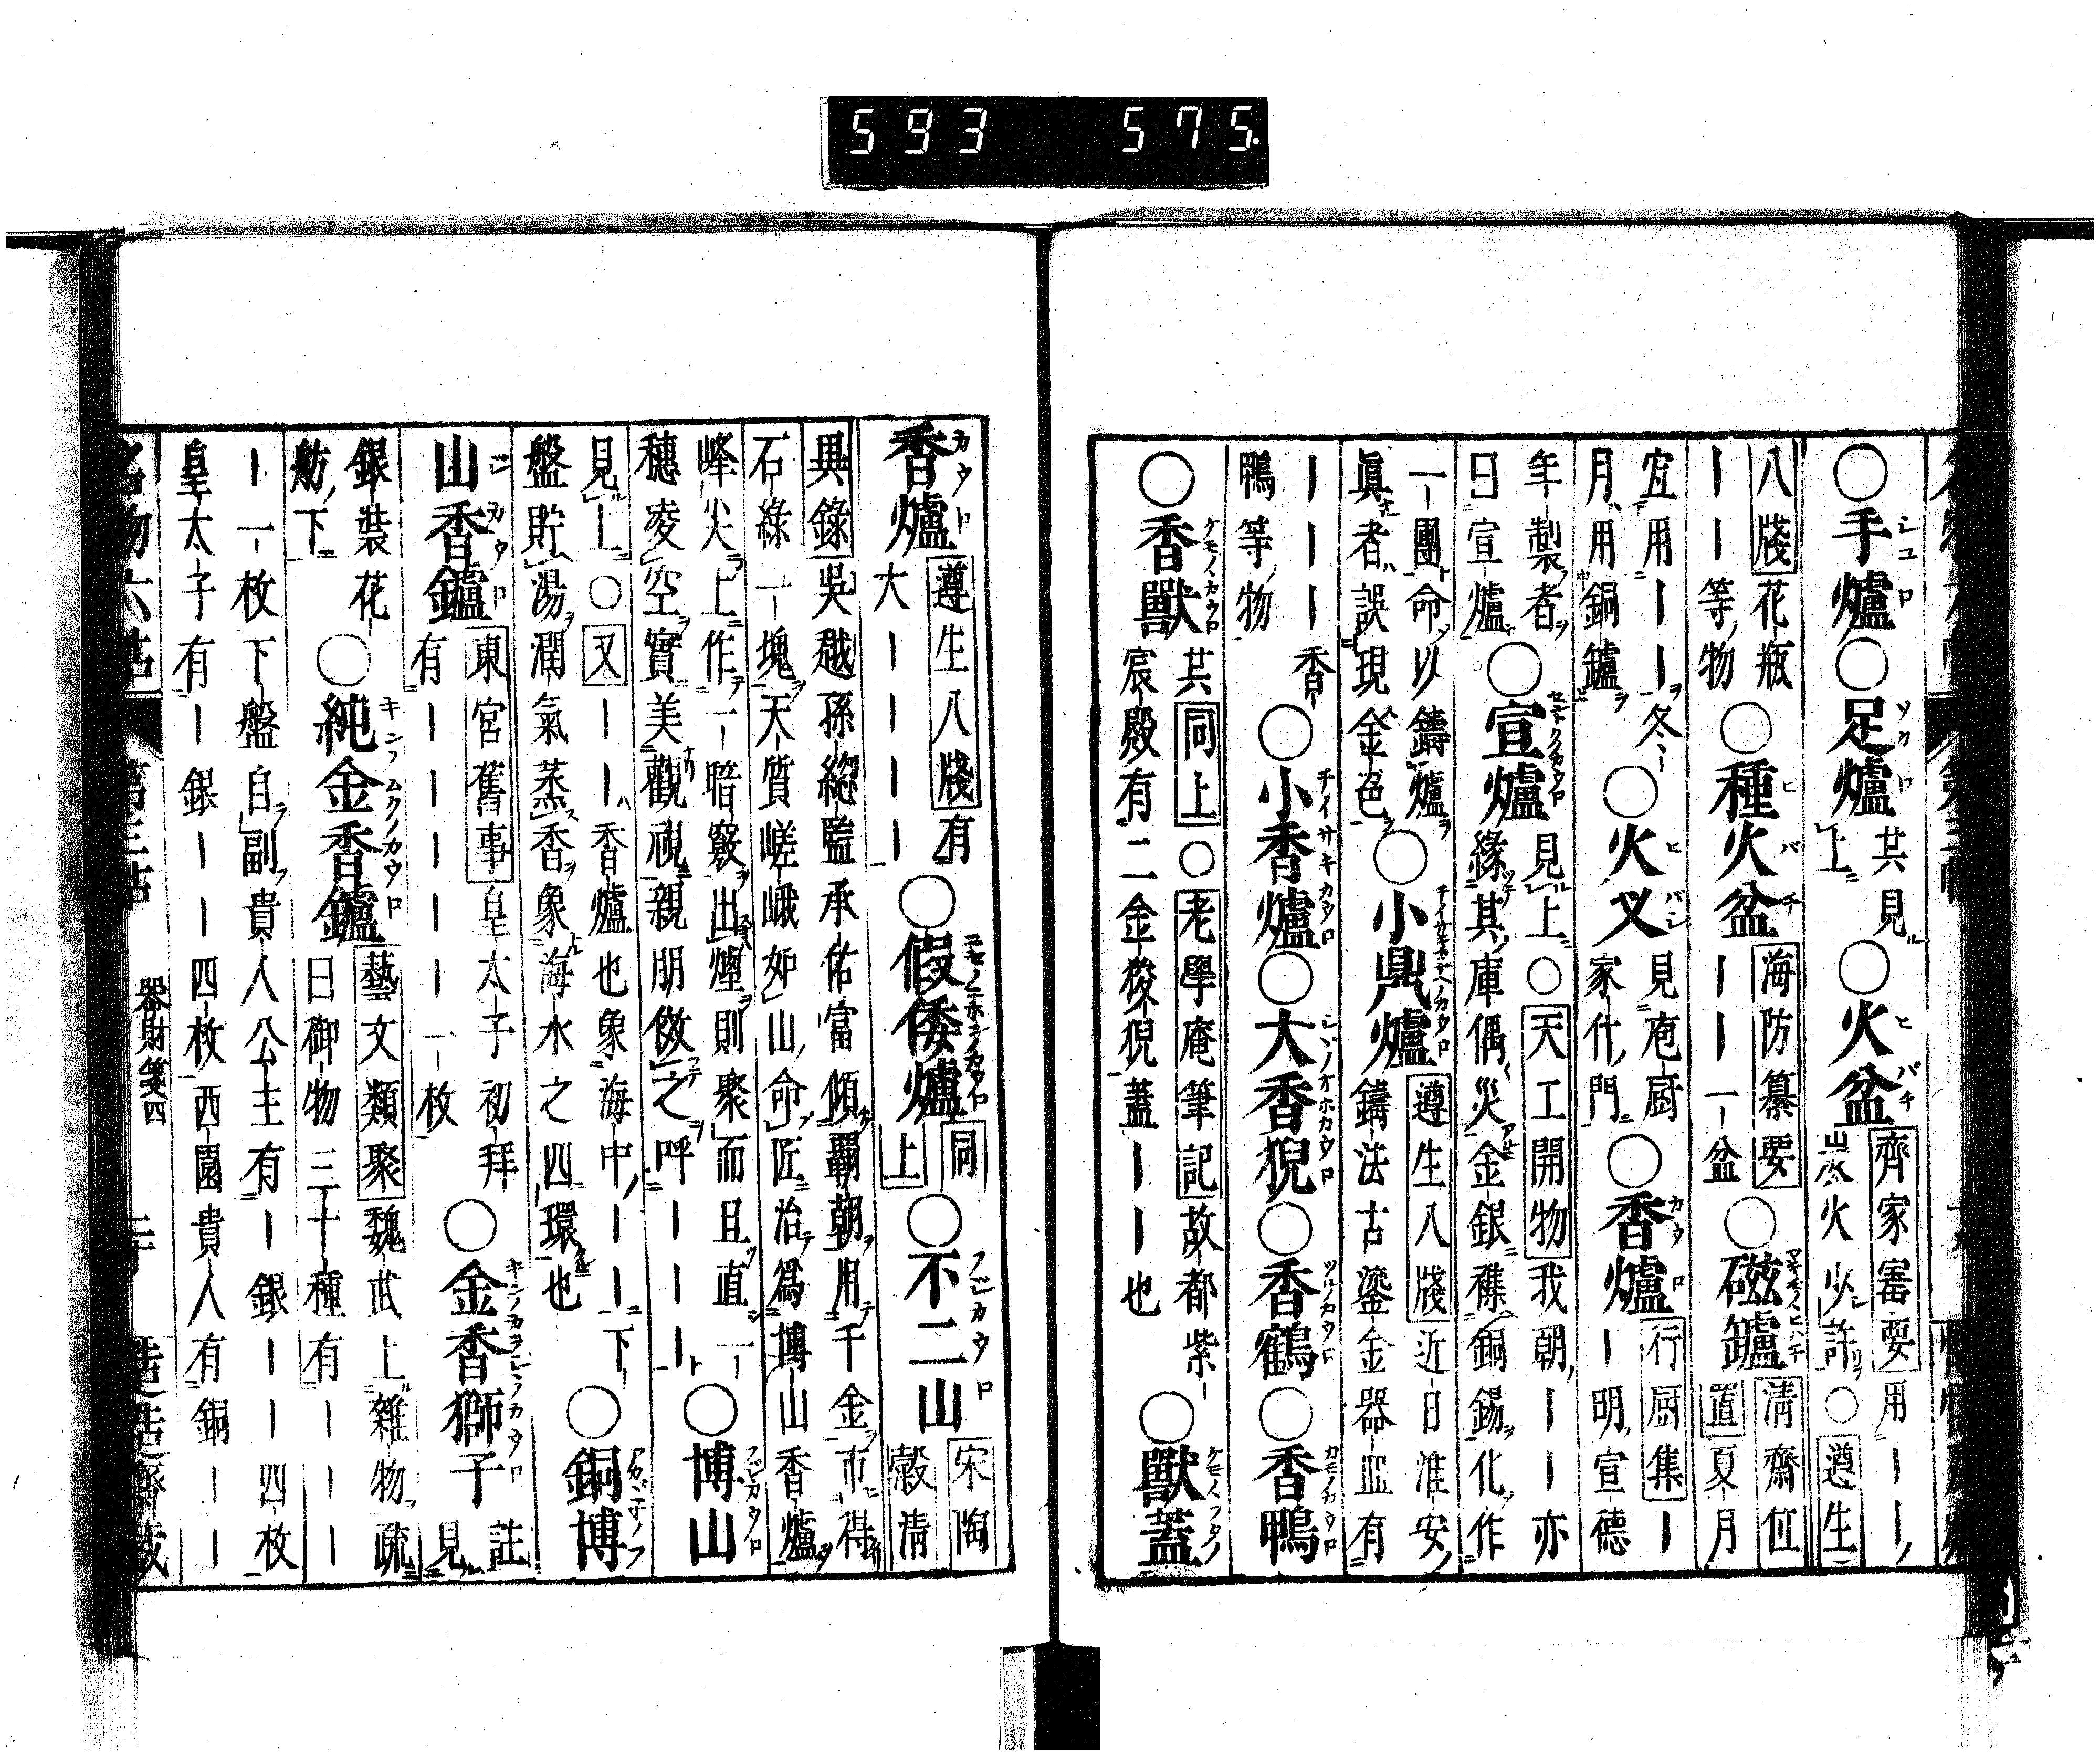 593 575.
○手爐○足爐共見上○火盆齊家寶要用｜｜炭火少許○遵生
八牋花瓶｜｜｜等物○種火盆海防纂要｜｜｜一盆○磁鑪清齋位置夏月
宜用｜｜｜冬月用銅鑪○火叉見庖厨家什門○香爐行厨集｜｜明宣德
年製者曰宣爐○宣爐見上○天工開物我朝｜｜亦緣其庫偶災金銀雜銅錫化作
一團命以鑄爐眞者誤現金色○小鼎爐遵生八牋近日淮安鑄法古鎏金器皿有
｜｜｜香鴨等物○小香爐○大香猊○香鶴○香鴨
○香獸共同上○老學庵筆記故都紫宸殿有二金狻猊蓋｜｜也○獸蓋
香爐遵生八牋有大｜｜｜｜○假倭爐同上○不二山宋陶穀清
異錄吳越孫総監承佑富傾覇朝用千金市得石綠一塊天質嵯峨如山命匠治爲博山香爐
峰尖上作一暗竅出煙則聚而且直穗凌空實美觀視親朋傚之呼｜｜｜○博山
見上○又｜｜香爐也象海中｜｜下盤貯湯潤氣蒸香象海水之四環也○銅博
山香鑪東宮舊事皇太子初拜有｜｜｜｜一枚○金香獅子註見
銀裝花舫下○純金香鑪藝文類聚魏武上雜物疏曰御物三十種有｜｜｜
｜一枚下盤自副貴人公主有｜銀｜｜四枚皇太子有｜銀｜｜四枚西園貴人有銅｜｜
名物六帖 第三帖 器財箋四